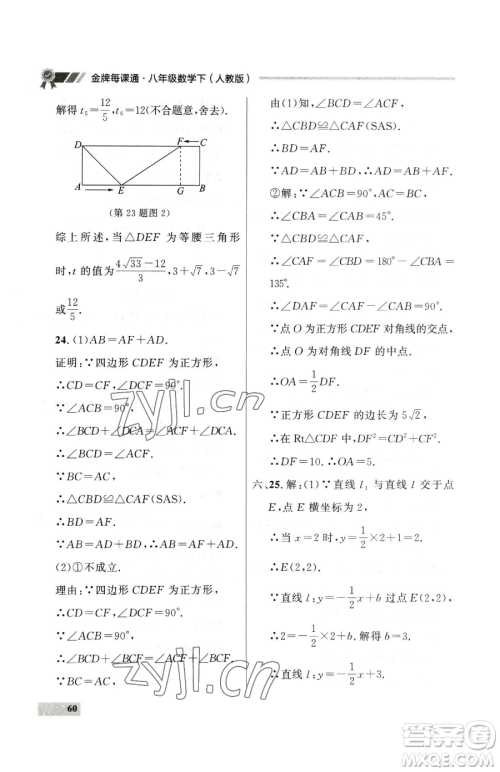 金牌每课通·八年级数学下(人教版)
解得 t₅=12/5,t₆=12(不合题意,舍去).
D F C
A E G B
(第 23 题图 2)
综上所述,当△DEF 为等腰三角形
时,t 的值为 (4√33-12)/3,3+√7,3-√7
或 12/5.
24. (1)AB=AF+AD.
证明:∵四边形 CDEF 为正方形,
∴CD=CF,∠DCF=90°.
∵∠ACB=90°,
∴∠BCD+∠DCA=∠ACF+∠DCA.
∴∠BCD=∠ACF.
∵BC=AC,
∴△CBD≌△CAF(SAS).
∴BD=AF.
∴AB=BD+AD=AF+AD.
(2)①不成立.
理由:∵四边形 CDEF 为正方形,
∴CD=CF,∠DCF=90°.
∵∠ACB=90°,
∴∠BCD+∠BCF=∠ACF+∠BCF.
∴∠BCD=∠ACF.
∵BC=AC,
60
由(1)知,∠BCD=∠ACF.
∴△CBD≌△CAF(SAS).
∴BD=AF.
∵AD=AB+BD=AB+AF.
②解:∵∠ACB=90°,AC=BC,
∴∠CBA=∠CAB=45°.
∴∠CAF=∠CBD=180°-∠CBA=
135°.
∴∠DAF=∠CAF-∠CAB=90°.
∵点 O 为正方形 CDEF 对角线的交点,
∴点 O 为 DF 的中点.
∴OA=1/2DF.
∵正方形 CDEF 的边长为 5√2,
∴在 Rt△CDF 中,DF²=CD²+CF².
∴DF=10.∴OA=5.
六、25. 解:(1)∵直线 l₁ 与直线 l 交于点
E,点 E 横坐标为 2,
∴当 x=2 时,y=1/2×2+1=2.
∴E(2,2).
∵直线 l:y=-1/2x+b 过点 E(2,2),
∴2=-1/2×2+b.解得 b=3.
∴直线 l:y=-1/2x+3.
zyjl.cn
zyjl.cn